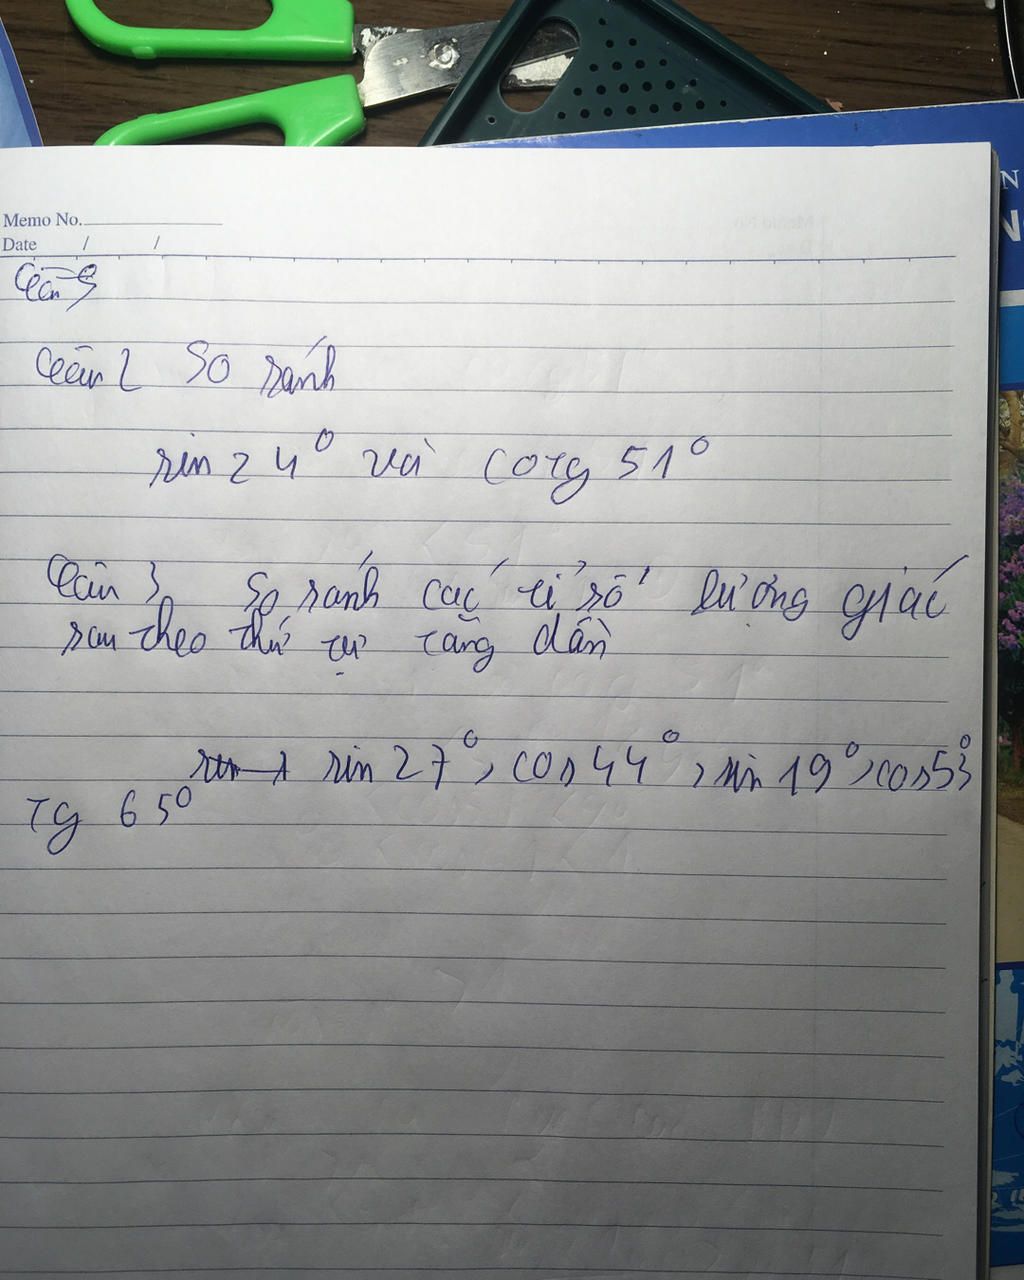 Memo No.
Date / /
Câu 2 So sánh
sin 24° và cotg 51°
Câu 3 So sánh các tỉ số lượng giác
sau theo thứ tự tăng dần
sin 27°, cos 44°, sin 19°, cos 53°
tg 65°
N
N